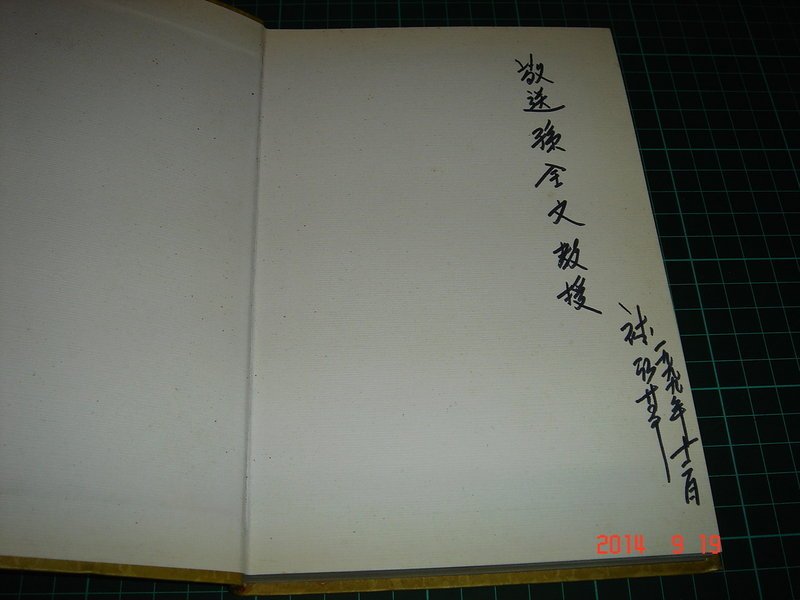 敬送孫全文教授
一九九九年十二月
2014 9 19